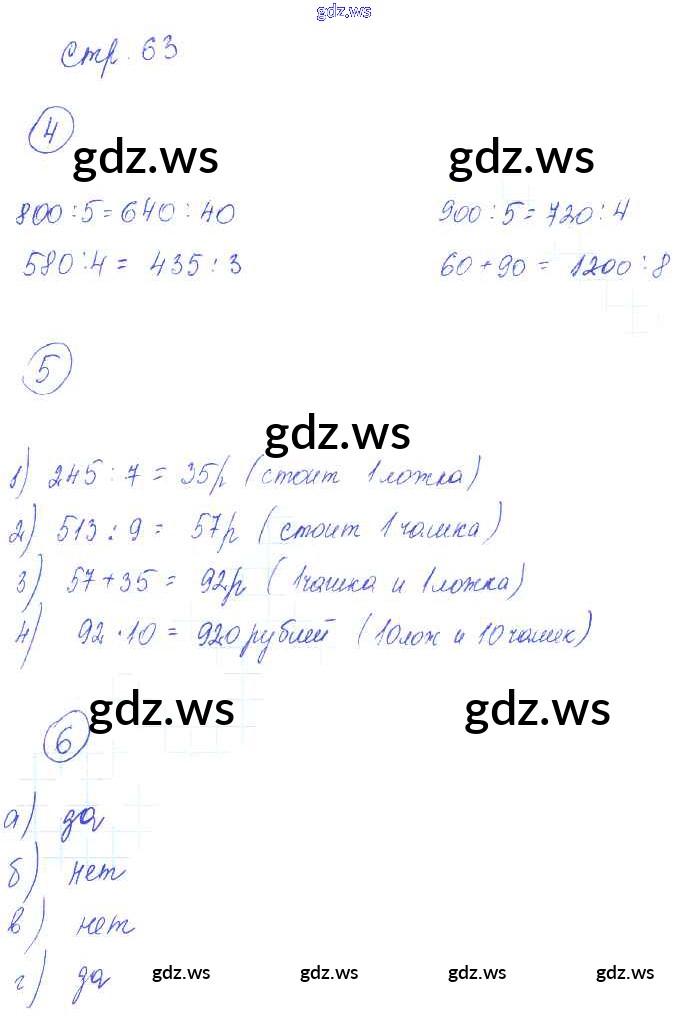 gdz.ws
стр. 63
4
gdz.ws gdz.ws
800 : 5 = 640 : 40 900 : 5 = 720 : 4
580 : 4 = 435 : 3 60 + 90 = 1200 : 8
5
gdz.ws
1) 245 : 7 = 35р (стоит 1 ложка)
2) 513 : 9 = 57р (стоит 1 чашка)
3) 57 + 35 = 92р (1 чашка и 1 ложка)
4) 92 · 10 = 920 рублей (10 лож и 10 чашек)
gdz.ws gdz.ws
6
а) да
б) нет
в) нет
г) да
gdz.ws gdz.ws gdz.ws gdz.ws